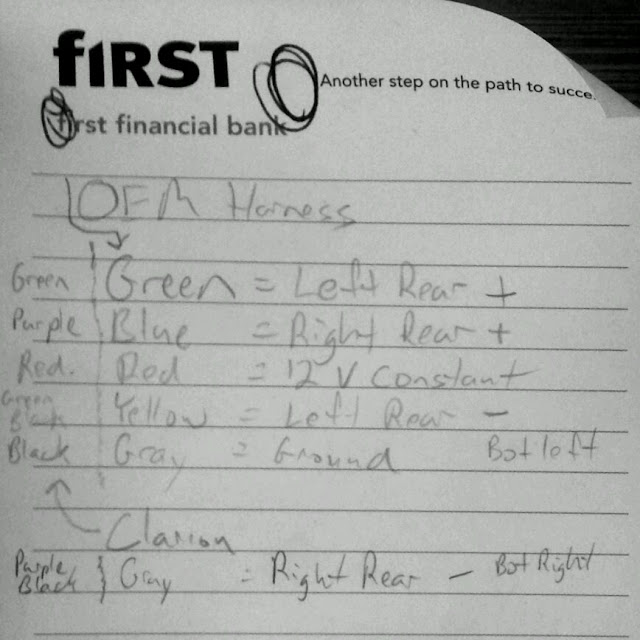 fiRST
Another step on the path to succe
first financial bank
OFM Harness
Green Green = Left Rear +
Purple Blue = Right Rear +
Red. Red = 12 V constant
Green Black Yellow = Left Rear -
Black Gray = Ground Bot left
Clarion
Purple Black } Gray = Right Rear - Bot Right